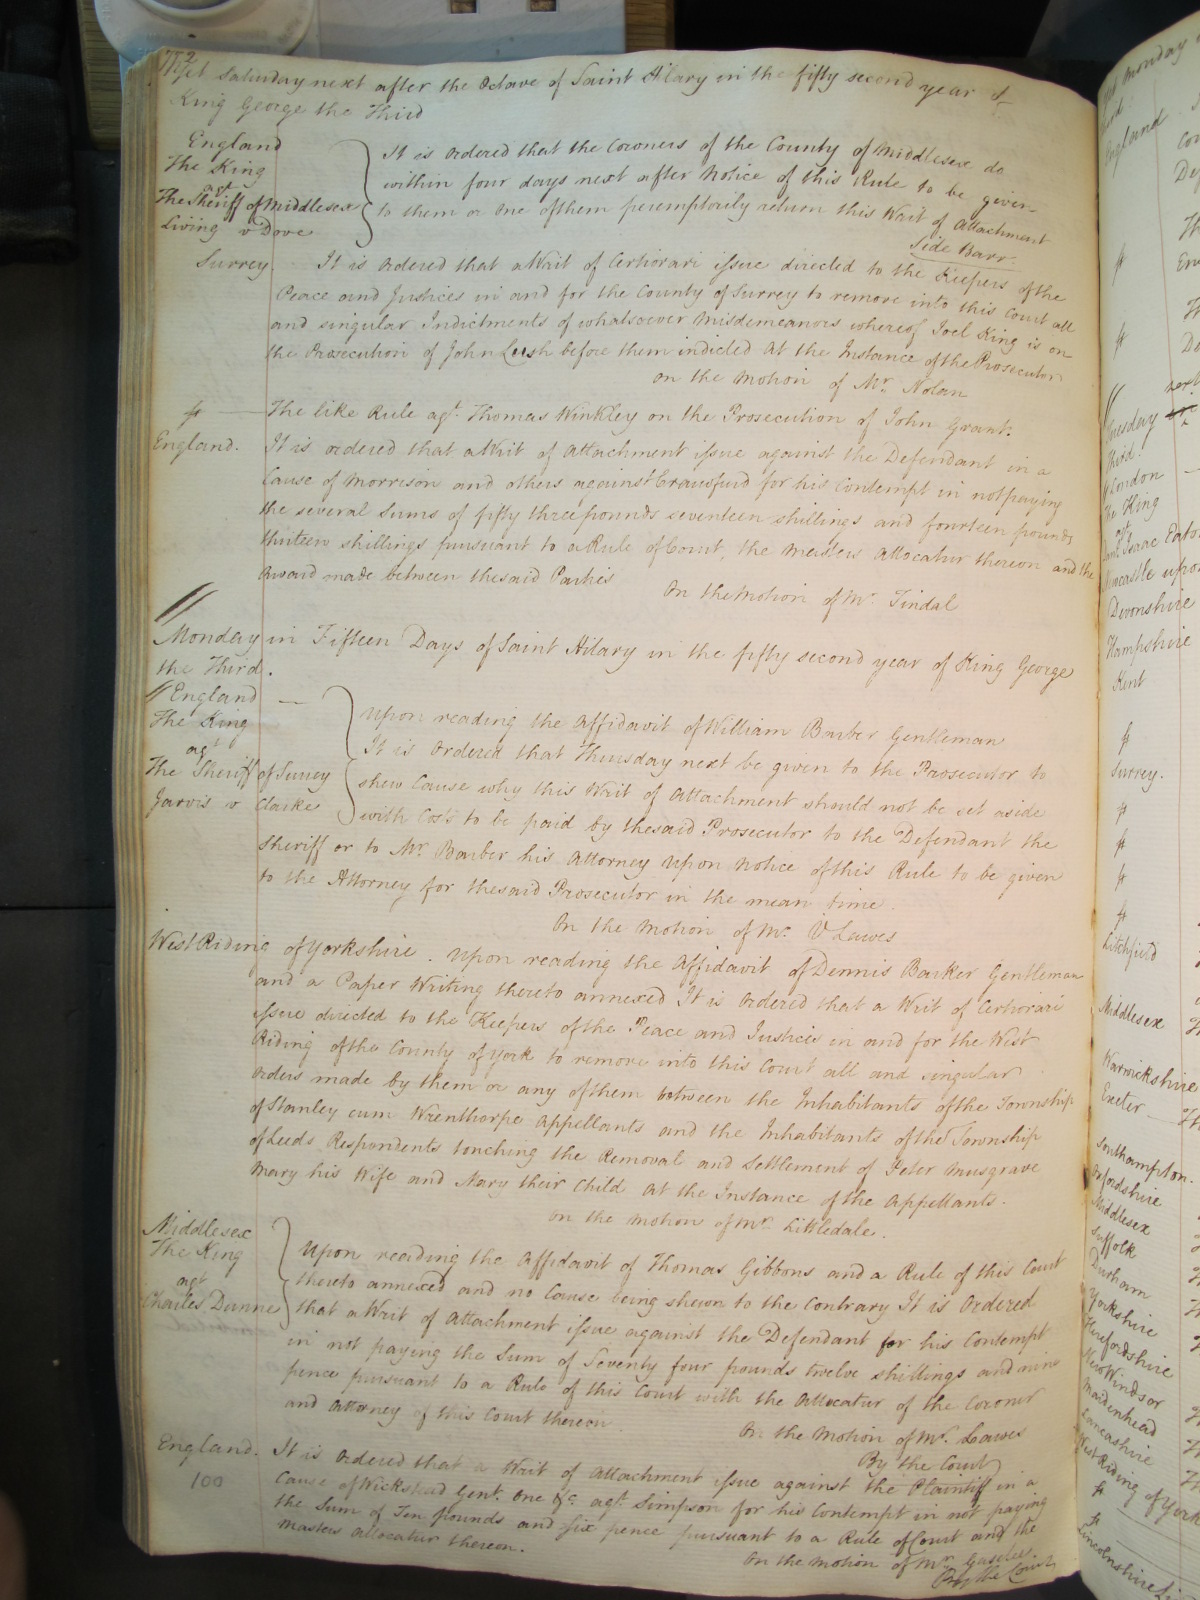 Yet Saturday next after the Octave of Saint Hilary in the fifty second year of
King George the Third
England
The King
agt
The Sheriff of Middlesex
Living v Dove
It is ordered that the Coroners of the County of Middlesex do
within four days next after Notice of this Rule to be given
to them or one of them peremptorily return this Writ of Attachment
Side Barr.
Surrey It is ordered that a Writ of Certiorari issue directed to the Keepers of the
Peace and Justices in and for the County of Surrey to remove into this Court all
and singular Indictments of whatsoever misdemeanors whereof Joel King is on
the Prosecution of John Lush before them indicted At the Instance of the Prosecutor
On the Motion of Mr. Nolan
The like Rule agt. Thomas Winkley on the Prosecution of John Grant.
England. It is ordered that a Writ of Attachment issue against the Defendant in a
Cause of Morrison and others against Crawfurd for his Contempt in not paying
the several Sums of fifty three pounds seventeen shillings and fourteen pounds
thirteen shillings pursuant to a Rule of Court, the Masters Allocatur thereon and the
Award made between the said Parties
On the Motion of Mr. Tindal
Monday in Fifteen Days of Saint Hilary in the fifty second year of King George
the Third.
England
The King
agt
The Sheriff of Surrey
Jarvis v Clarke
Upon reading the Affidavit of William Barber Gentleman
It is Ordered that Thursday next be given to the Prosecutor to
shew Cause why this Writ of Attachment should not be set aside
with Costs to be paid by the said Prosecutor to the Defendant the
Sheriff or to Mr. Barber his Attorney upon Notice of this Rule to be given
to the Attorney for the said Prosecutor in the mean time.
On the Motion of Mr. V Lawes
West Riding of Yorkshire. Upon reading the Affidavit of Dennis Barker Gentleman
and a Paper Writing thereto annexed It is Ordered that a Writ of Certiorari
issue directed to the Keepers of the Peace and Justices in and for the West
Riding of the County of York to remove into this Court all and singular
Orders made by them or any of them between the Inhabitants of the Township
of Stanley cum Wrenthorpe Appellants and the Inhabitants of the Township
of Leeds Respondents touching the Removal and Settlement of Peter Musgrave
Mary his Wife and Mary their Child At the Instance of the Appellants.
On the Motion of Mr. Littledale.
Middlesex
The King
agt
Charles Dunne
Upon reading the Affidavit of Thomas Gibbons and a Rule of this Court
thereto annexed and no Cause being shewn to the Contrary It is Ordered
that a Writ of Attachment issue against the Defendant for his Contempt
in not paying the Sum of Seventy four pounds twelve shillings and nine
pence pursuant to a Rule of this Court with the Allocatur of the Coroner
and Attorney of this Court thereon
On the Motion of Mr. Lawes
By the Court
England. It is Ordered that a Writ of Attachment issue against the Plaintiff in a
100
Cause of Wickstead Gent. One &c. agt. Simpson for his Contempt in not paying
the Sum of Ten pounds and six pence pursuant to a Rule of Court and the
Masters Allocatur thereon.
On the Motion of Mr. Gaselee
By the Court
England
Tuesday next
Third.
London
The King
agt
Isaac Eaton
Newcastle upon
Devonshire
Hampshire
Kent
Surrey.
Litchfield
Middlesex
Warwickshire
Exeter
Southampton.
Oxfordshire
Middlesex
Suffolk
Durham
Yorkshire
Herefordshire
New Windsor
Maidenhead
Lancashire
West Riding of York
Lincolnshire